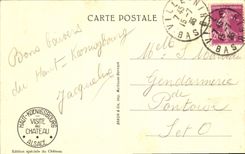 CARTE POSTALE
Bons baisers
du Haut-Kœnigsbourg
Jacqueline
HAUT-KŒNIGSBOURG
VISITE
DU
CHATEAU
ALSACE
Edition spéciale du Château
Melle
Gendarmerie
de
Pontoise
S et O